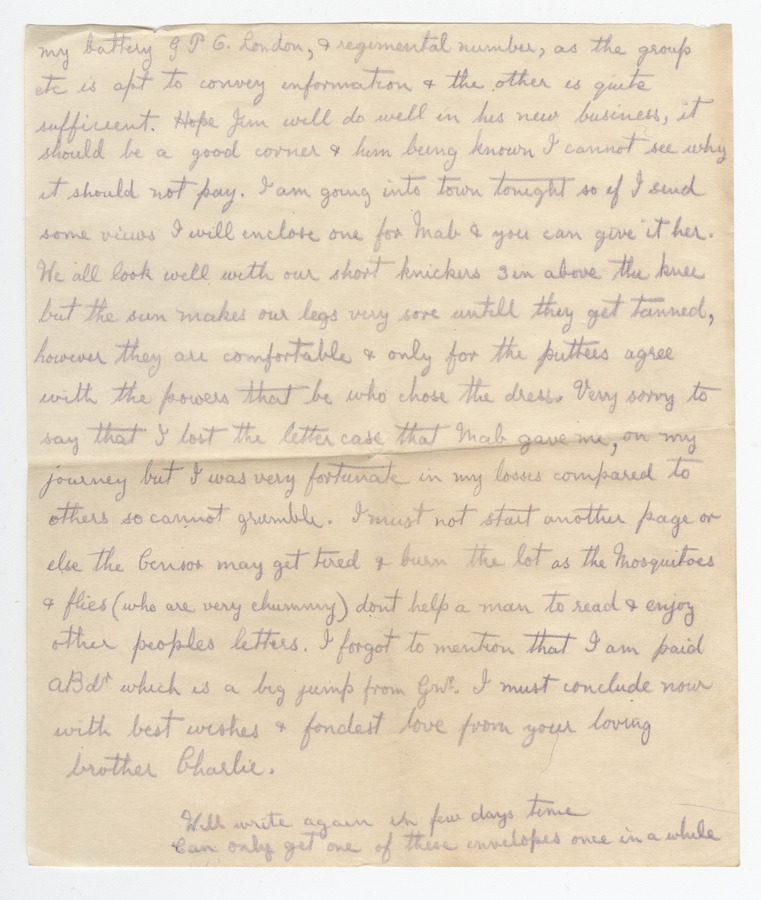 my battery G P O. London, & regimental number, as the group
etc is apt to convey information & the other is quite
sufficient. Hope Jim will do well in his new business, it
should be a good corner & him being known I cannot see why
it should not pay. I am going into town tonight so if I send
some views I will enclose one for Mab & you can give it her.
We all look well with our short knickers 3 in above the knee
but the sun makes our legs very sore untill they get tanned,
however they are comfortable & only for the puttees agree
with the powers that be who chose the dress. Very sorry to
say that I lost the letter case that Mab gave me, on my
journey but I was very fortunate in my losses compared to
others so cannot grumble. I must not start another page or
else the Censor may get tired & burn the lot as the Mosquitoes
& flies (who are very chummy) dont help a man to read & enjoy
other peoples letters. I forgot to mention that I am paid
aBdr which is a big jump from Gnr. I must conclude now
with best wishes & fondest love from your loving
brother Charlie.
Will write again in few days time
Can only get one of these envelopes once in a while